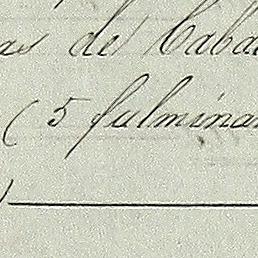 as de Caba
( 5 fulmina
)